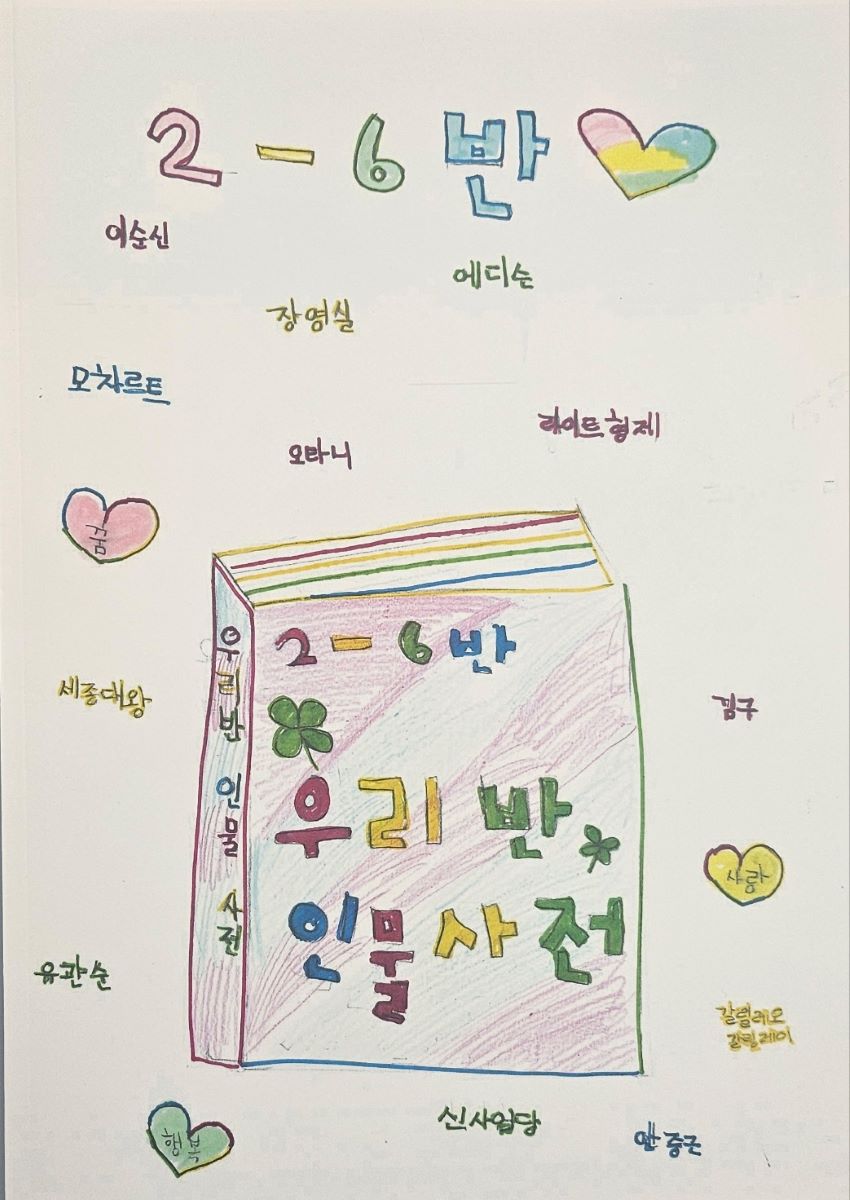 2-6반
이순신
에디슨
장영실
모차르트
오타니
라이트형제
꿈
우리반 인물 사전
2-6반
우리 반
인물사전
세종대왕
김구
사랑
유관순
갈릴레오
갈릴레이
신사임당
안중근
행복